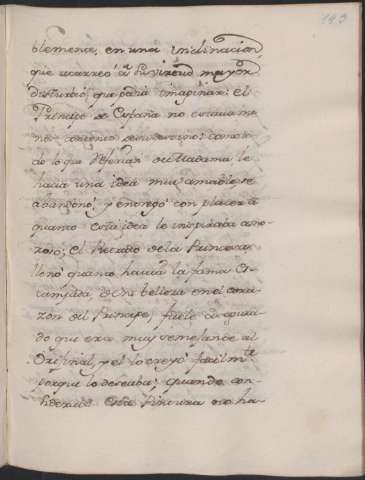 193
blemena, en una inclinacion,
que acarreó á su virtud mayor
disturbio, que podia imaginar: el
Principe de España no estaba me
nos contento de su destino: como to
do lo que de Madama le
hacia una idea muy amable, se
abandonó, y entregó con placer á
quanto esta idea le inspiraba amo-
roso; el Retrato de la Princesa
llenó quanto hacia la fama es-
de su belleza en el cora-
zon del Principe; fuele asegura-
do que era muy semejante al
Original, y él lo creyó facilmte
porque lo deseaba; quando con-
sideraba esta Pintura no ha-